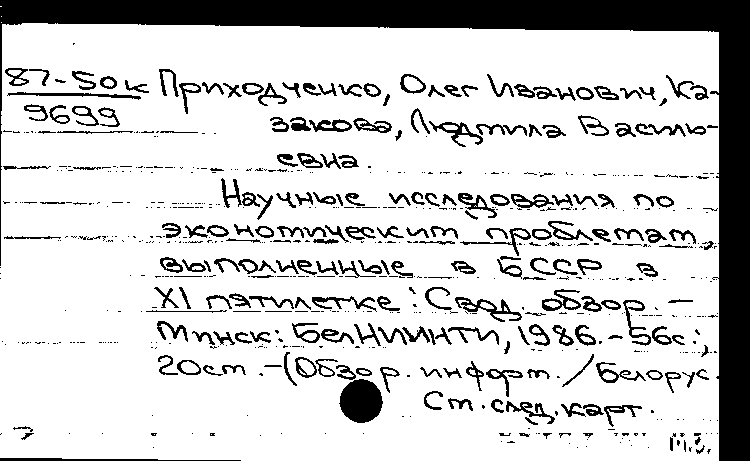 87-50к Приходченко, Олег Иванович, Ка-
9699 закова, Людмила Василь-
евна.
Научные исследования по
экономическим проблемам,
выполненные в БССР в
XI пятилетке: Свод. обзор. -
Минск: БелНИИНТИ, 1986. - 56с.;
20см. - (Обзор. информ. / Белорус.
См. след. карт.
М.З.